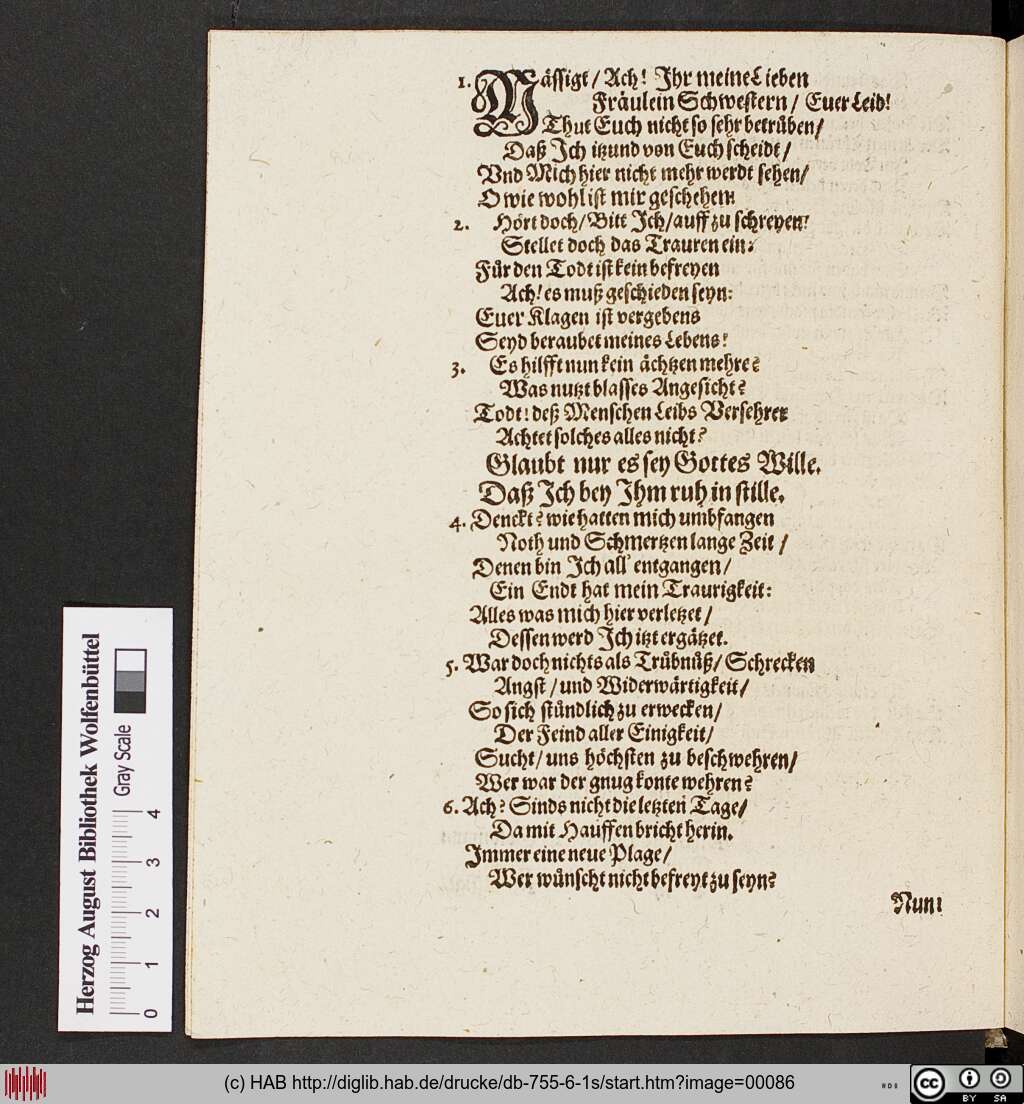 1. Mässigt / Ach! Ihr meine Lieben
Fräulein Schwestern / Euer Leid!
Thut Euch nicht so sehr betrüben /
Daß Ich itzund von Euch scheidt /
Vnd Mich hier nicht mehr werdt sehen /
O wie wohl ist mir geschehen:
2. Hört doch / Bitt Ich / auff zu schreyen!
Stellet doch das Trauren ein:
Für den Todt ist kein befreyen
Ach! es muß geschieden seyn:
Euer Klagen ist vergebens
Seyd beraubet meines Lebens!
3. Es hilfft nun kein ächtzen mehre?
Was nutzt blasses Angesicht?
Todt! deß Menschen Leibs Versehrer
Achtet solches alles nicht?
Glaubt nur es sey Gottes Wille.
Daß Ich bey Ihm ruh in stille.
4. Denckt? wie hatten mich umbfangen
Noth und Schmertzen lange Zeit /
Denen bin Ich all' entgangen /
Ein Endt hat mein Traurigkeit:
Alles was mich hier verletzet /
Dessen werd Ich itzt ergätzet.
5. War doch nichts als Trübnüß / Schrecken
Angst / und Widerwärtigkeit /
So sich stündlich zu erwecken /
Der Feind aller Einigkeit /
Sucht / uns höchsten zu beschwehren /
Wer war der gnug konte wehren?
6. Ach? Sinds nicht die letzten Tage /
Da mit Hauffen bricht herin.
Immer eine neue Plage /
Wer wünscht nicht befreyt zu seyn?
Nun
Herzog August Bibliothek Wolfenbüttel
Gray Scale
0 1 2 3 4
(c) HAB http://diglib.hab.de/drucke/db-755-6-1s/start.htm?image=00086
cc BY SA